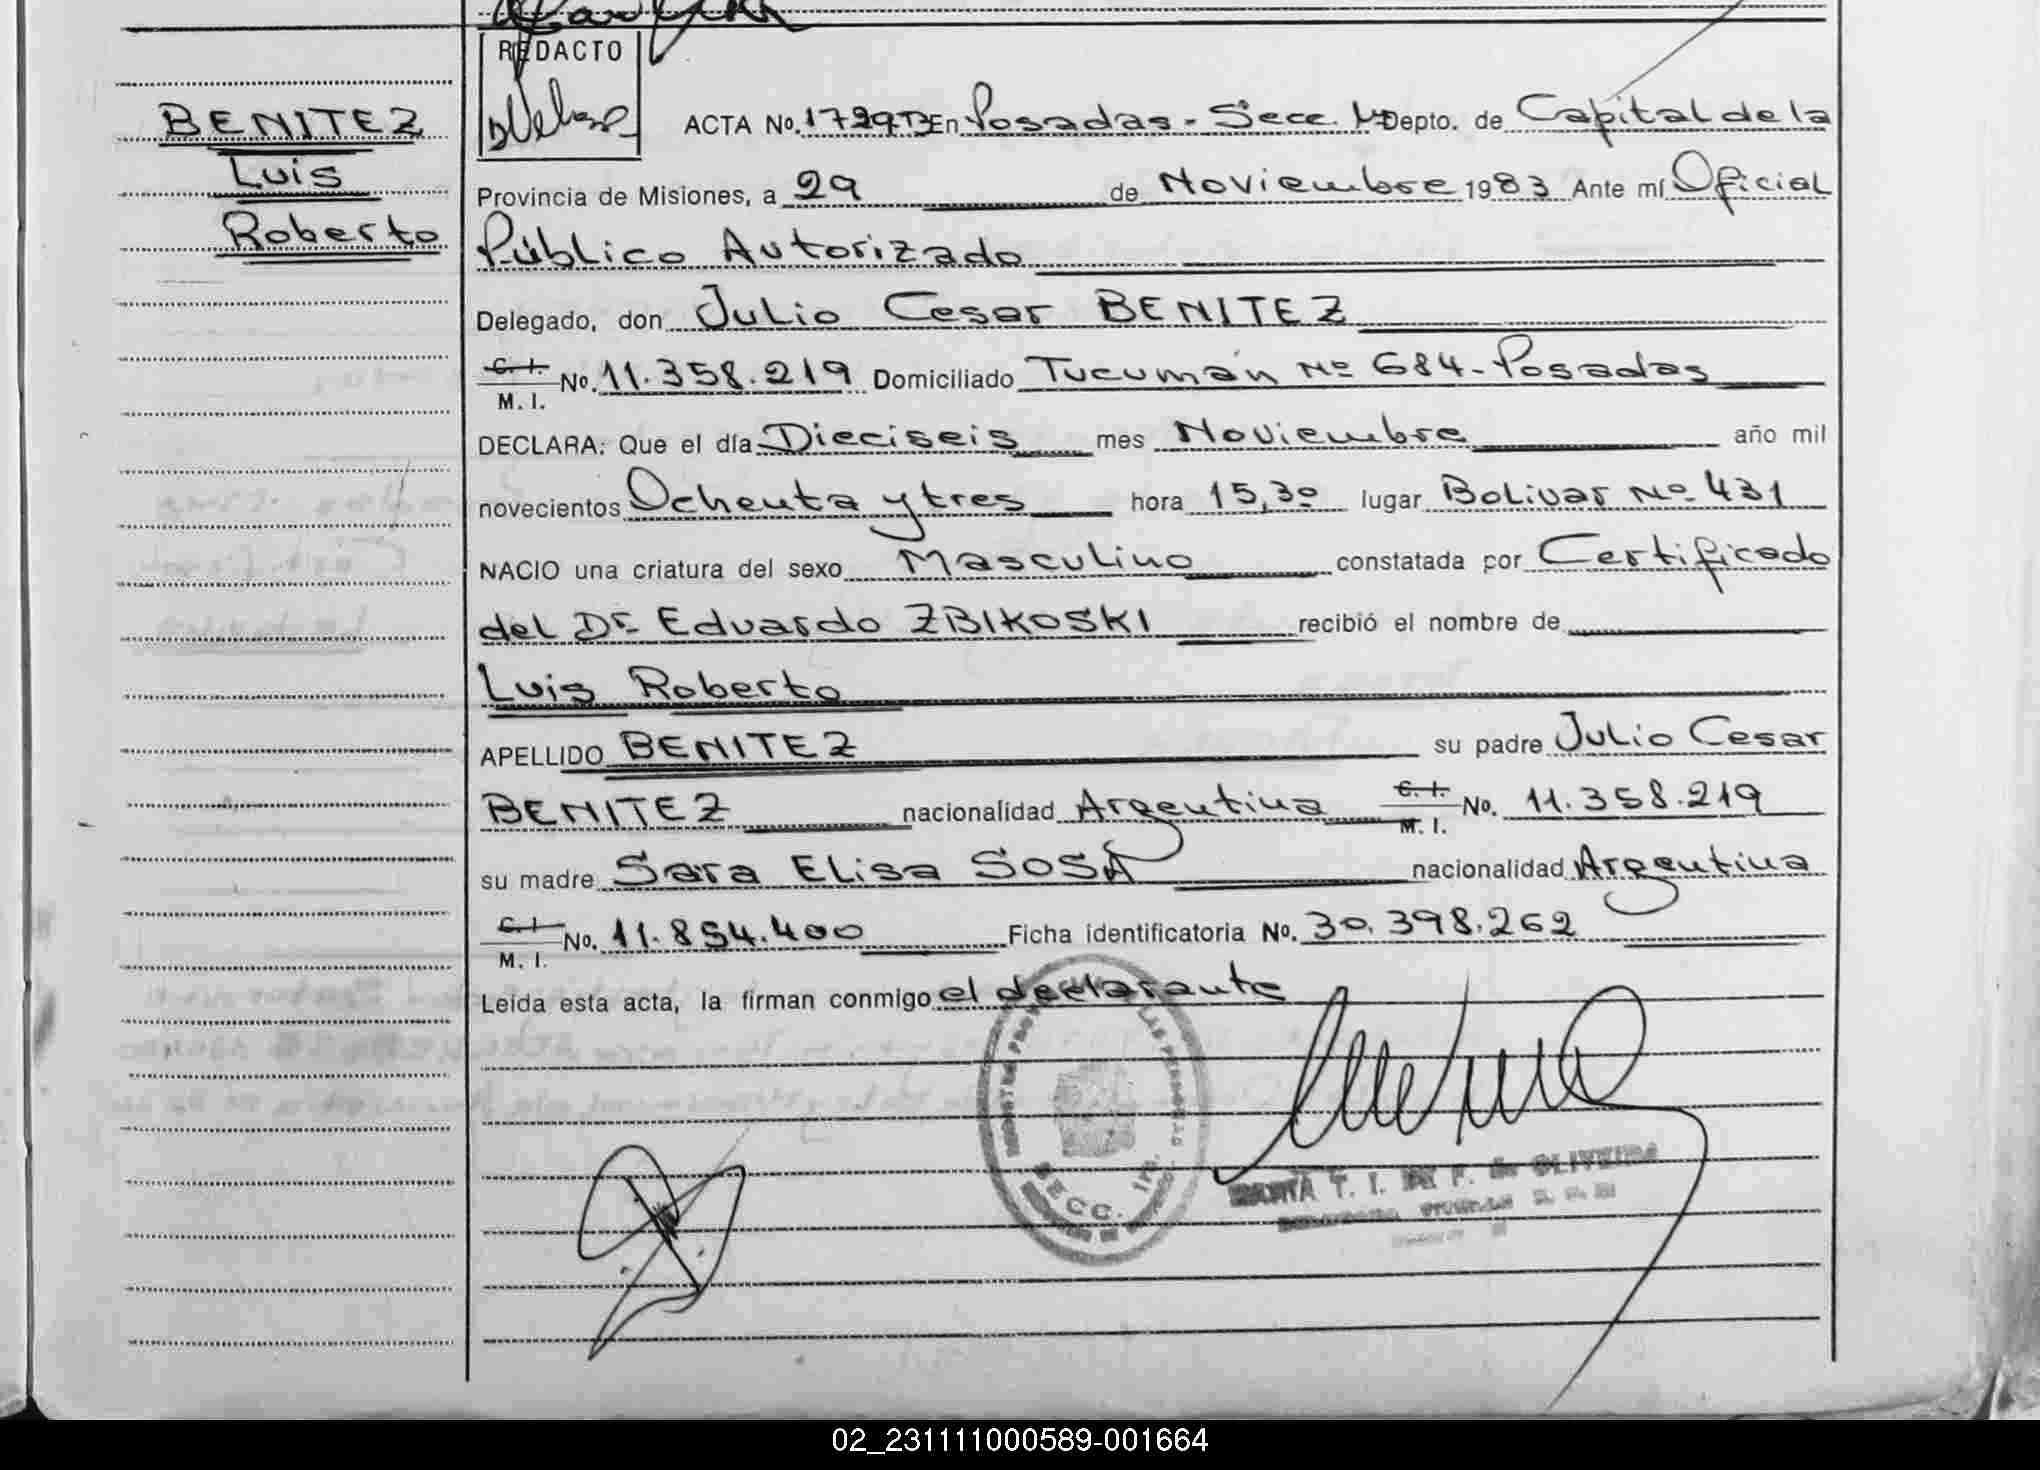 REDACTO
BENITEZ
Luis
Roberto
ACTA No. 1729 TB En Posadas - Secc. 1ª Depto. de Capital de la
Provincia de Misiones, a 29 de Noviembre 1983 Ante mí Oficial
Público Autorizado
Delegado, don Julio Cesar BENITEZ
C. I.
M. I. No. 11.358.219 Domiciliado Tucumán Nº 684 - Posadas
DECLARA: Que el día Dieciseis mes Noviembre año mil
novecientos Ochenta y tres hora 15,30 lugar Bolivar Nº 431
NACIO una criatura del sexo Masculino constatada por Certificado
del Dr. Eduardo ZBIKOSKI recibió el nombre de
Luis Roberto
APELLIDO BENITEZ su padre Julio Cesar
BENITEZ nacionalidad Argentina C. I. M. I. No. 11.358.219
su madre Sara Elisa SOSA nacionalidad Argentina
C. I.
M. I. No. 11.854.400 Ficha identificatoria No. 30.398.262
Leída esta acta, la firman conmigo el declarante
SECC. 1ra.
T. I. F. de OLIVEIRA
02_231111000589-001664